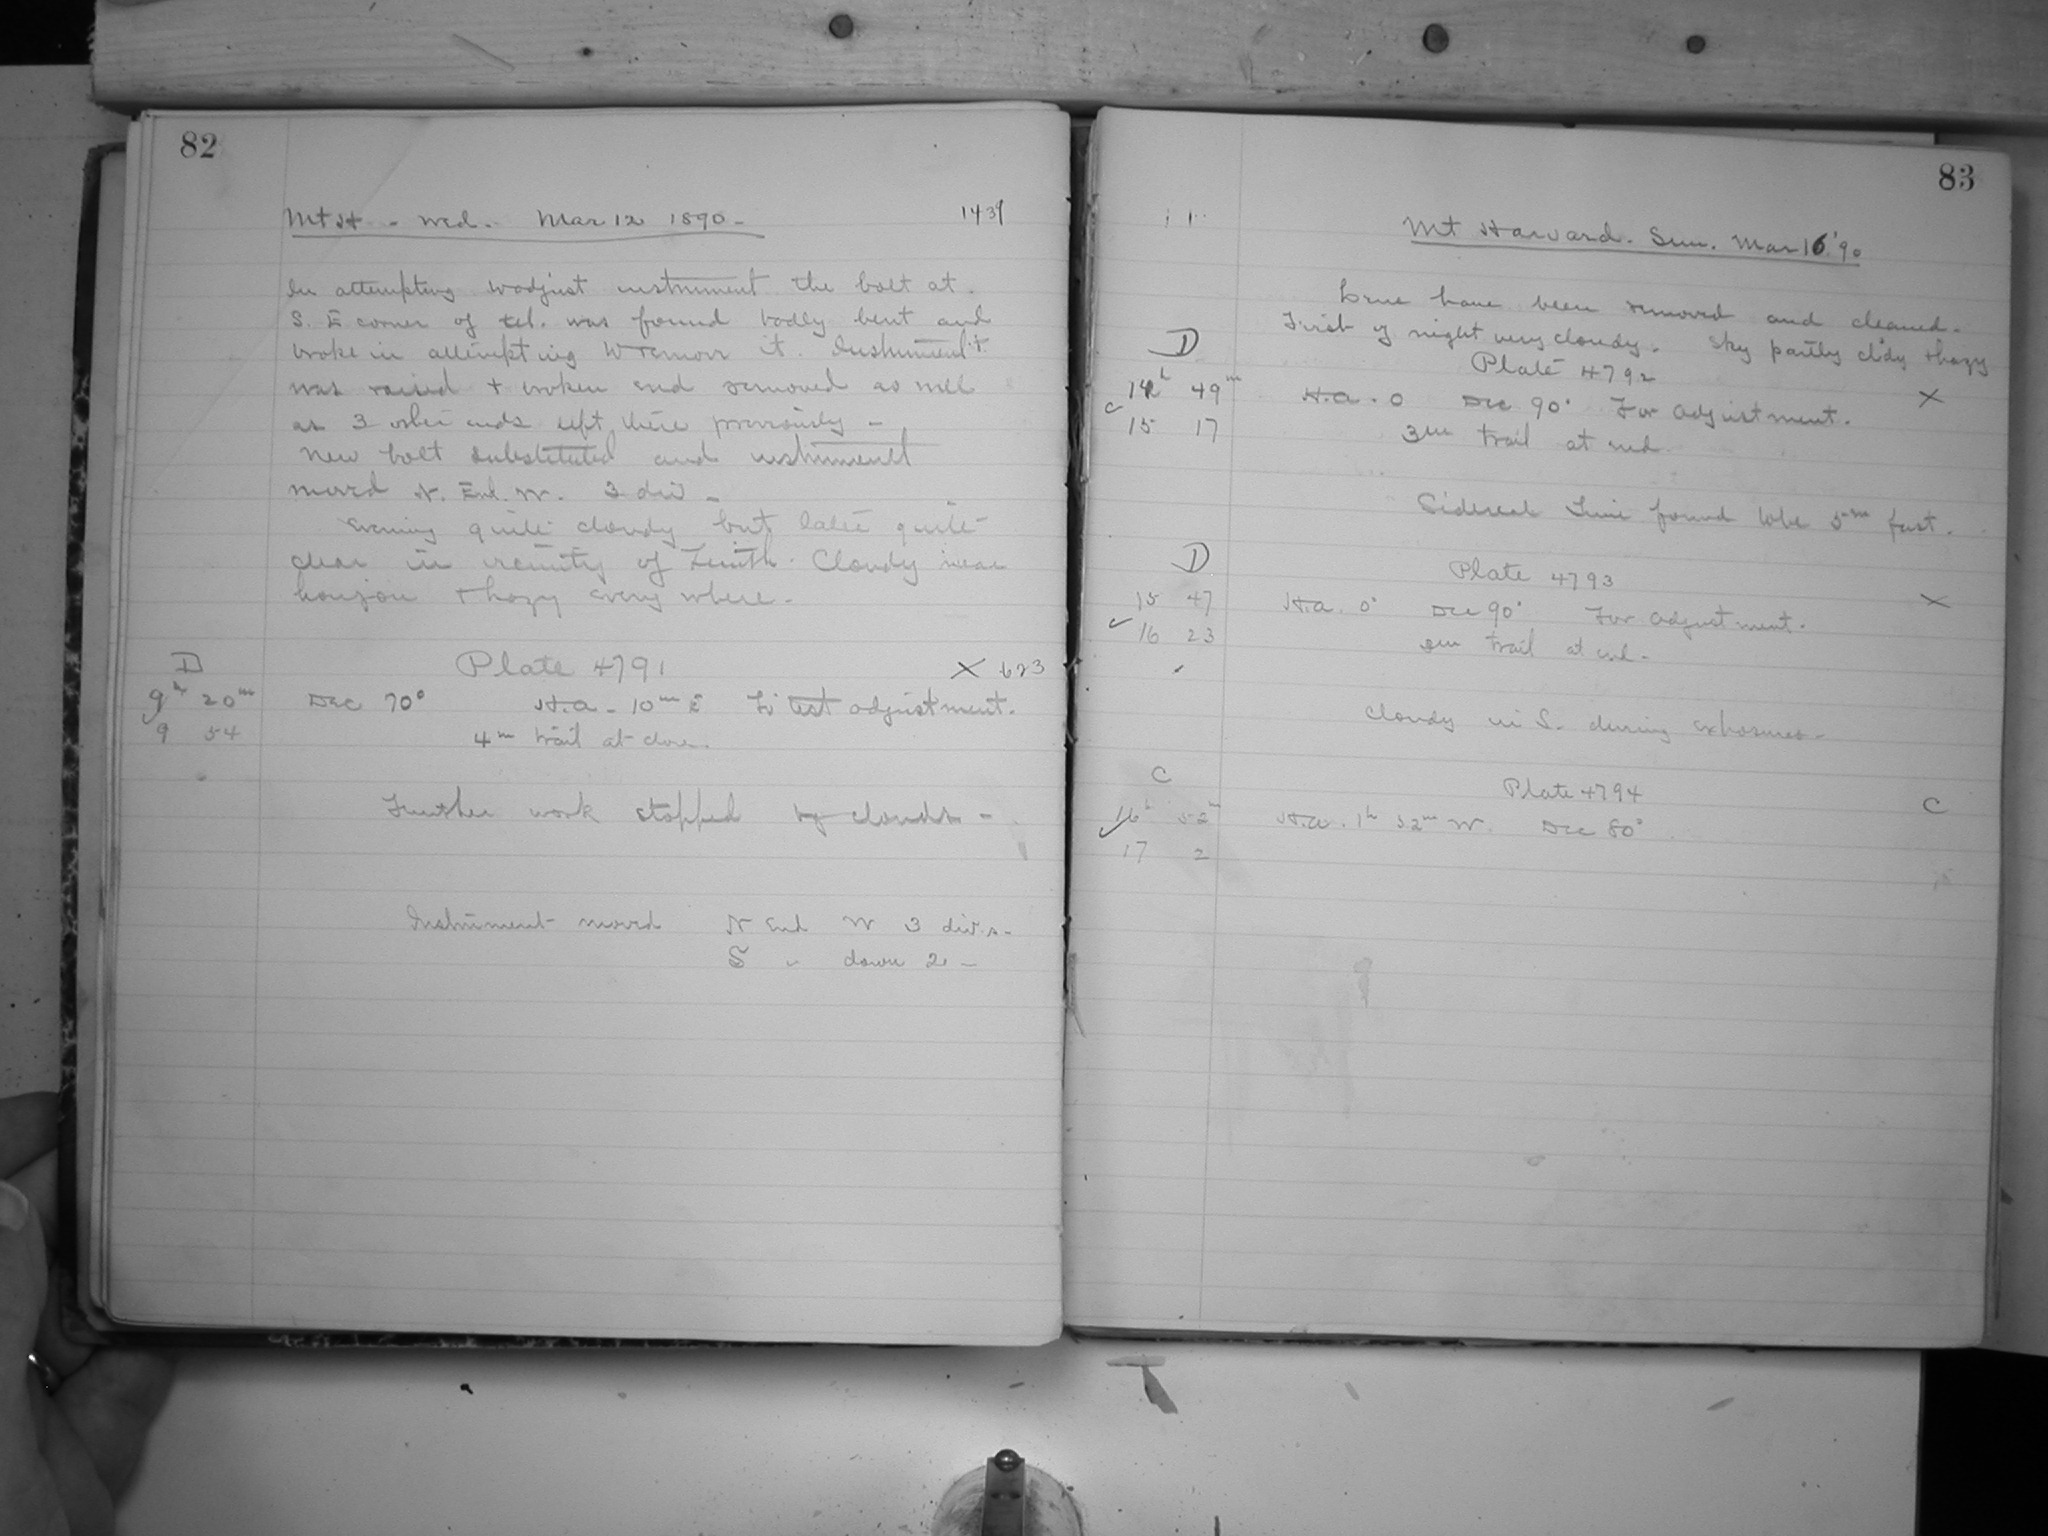 82
Mt H - Wed. Mar 12 1890 - 1439
In attempting to adjust instrument the bolt at
S. E corner of tel. was found badly bent and
broke in attempting to remove it. Instrument
was raised + broken end removed as well
as 3 other ends left there previously -
New bolt substituted and instrument
moved N. End. W. 3 div -
Evening quite cloudy but later quite
clear in vicinity of Zenith. Cloudy near
horizon + hazy every where.
D Plate 4791 X 623
9h 20m Dec 70° H.a - 10m E To test adjustment.
9 54 4m trail at close.
Further work stopped by clouds -
Instrument moved N End W 3 divs -
S " down 2 -
83
Mt Harvard. Sun. Mar 16 '90
have been removed and cleaned.
First of night very cloudy. Sky partly cldy + hazy
D Plate 4792
14h 49m H.a. 0 Dec 90° For adjustment. X
15 17 3m trail at end.
Sidereal Time found to be 5m fast.
D Plate 4793
15 47 H.a. 0° Dec 90° For adjustment. X
16 23 trail at end.
Cloudy in S. during exposures -
C Plate 4794 C
16h 52m H.a. 1h 52m W. Dec 80°
17 2